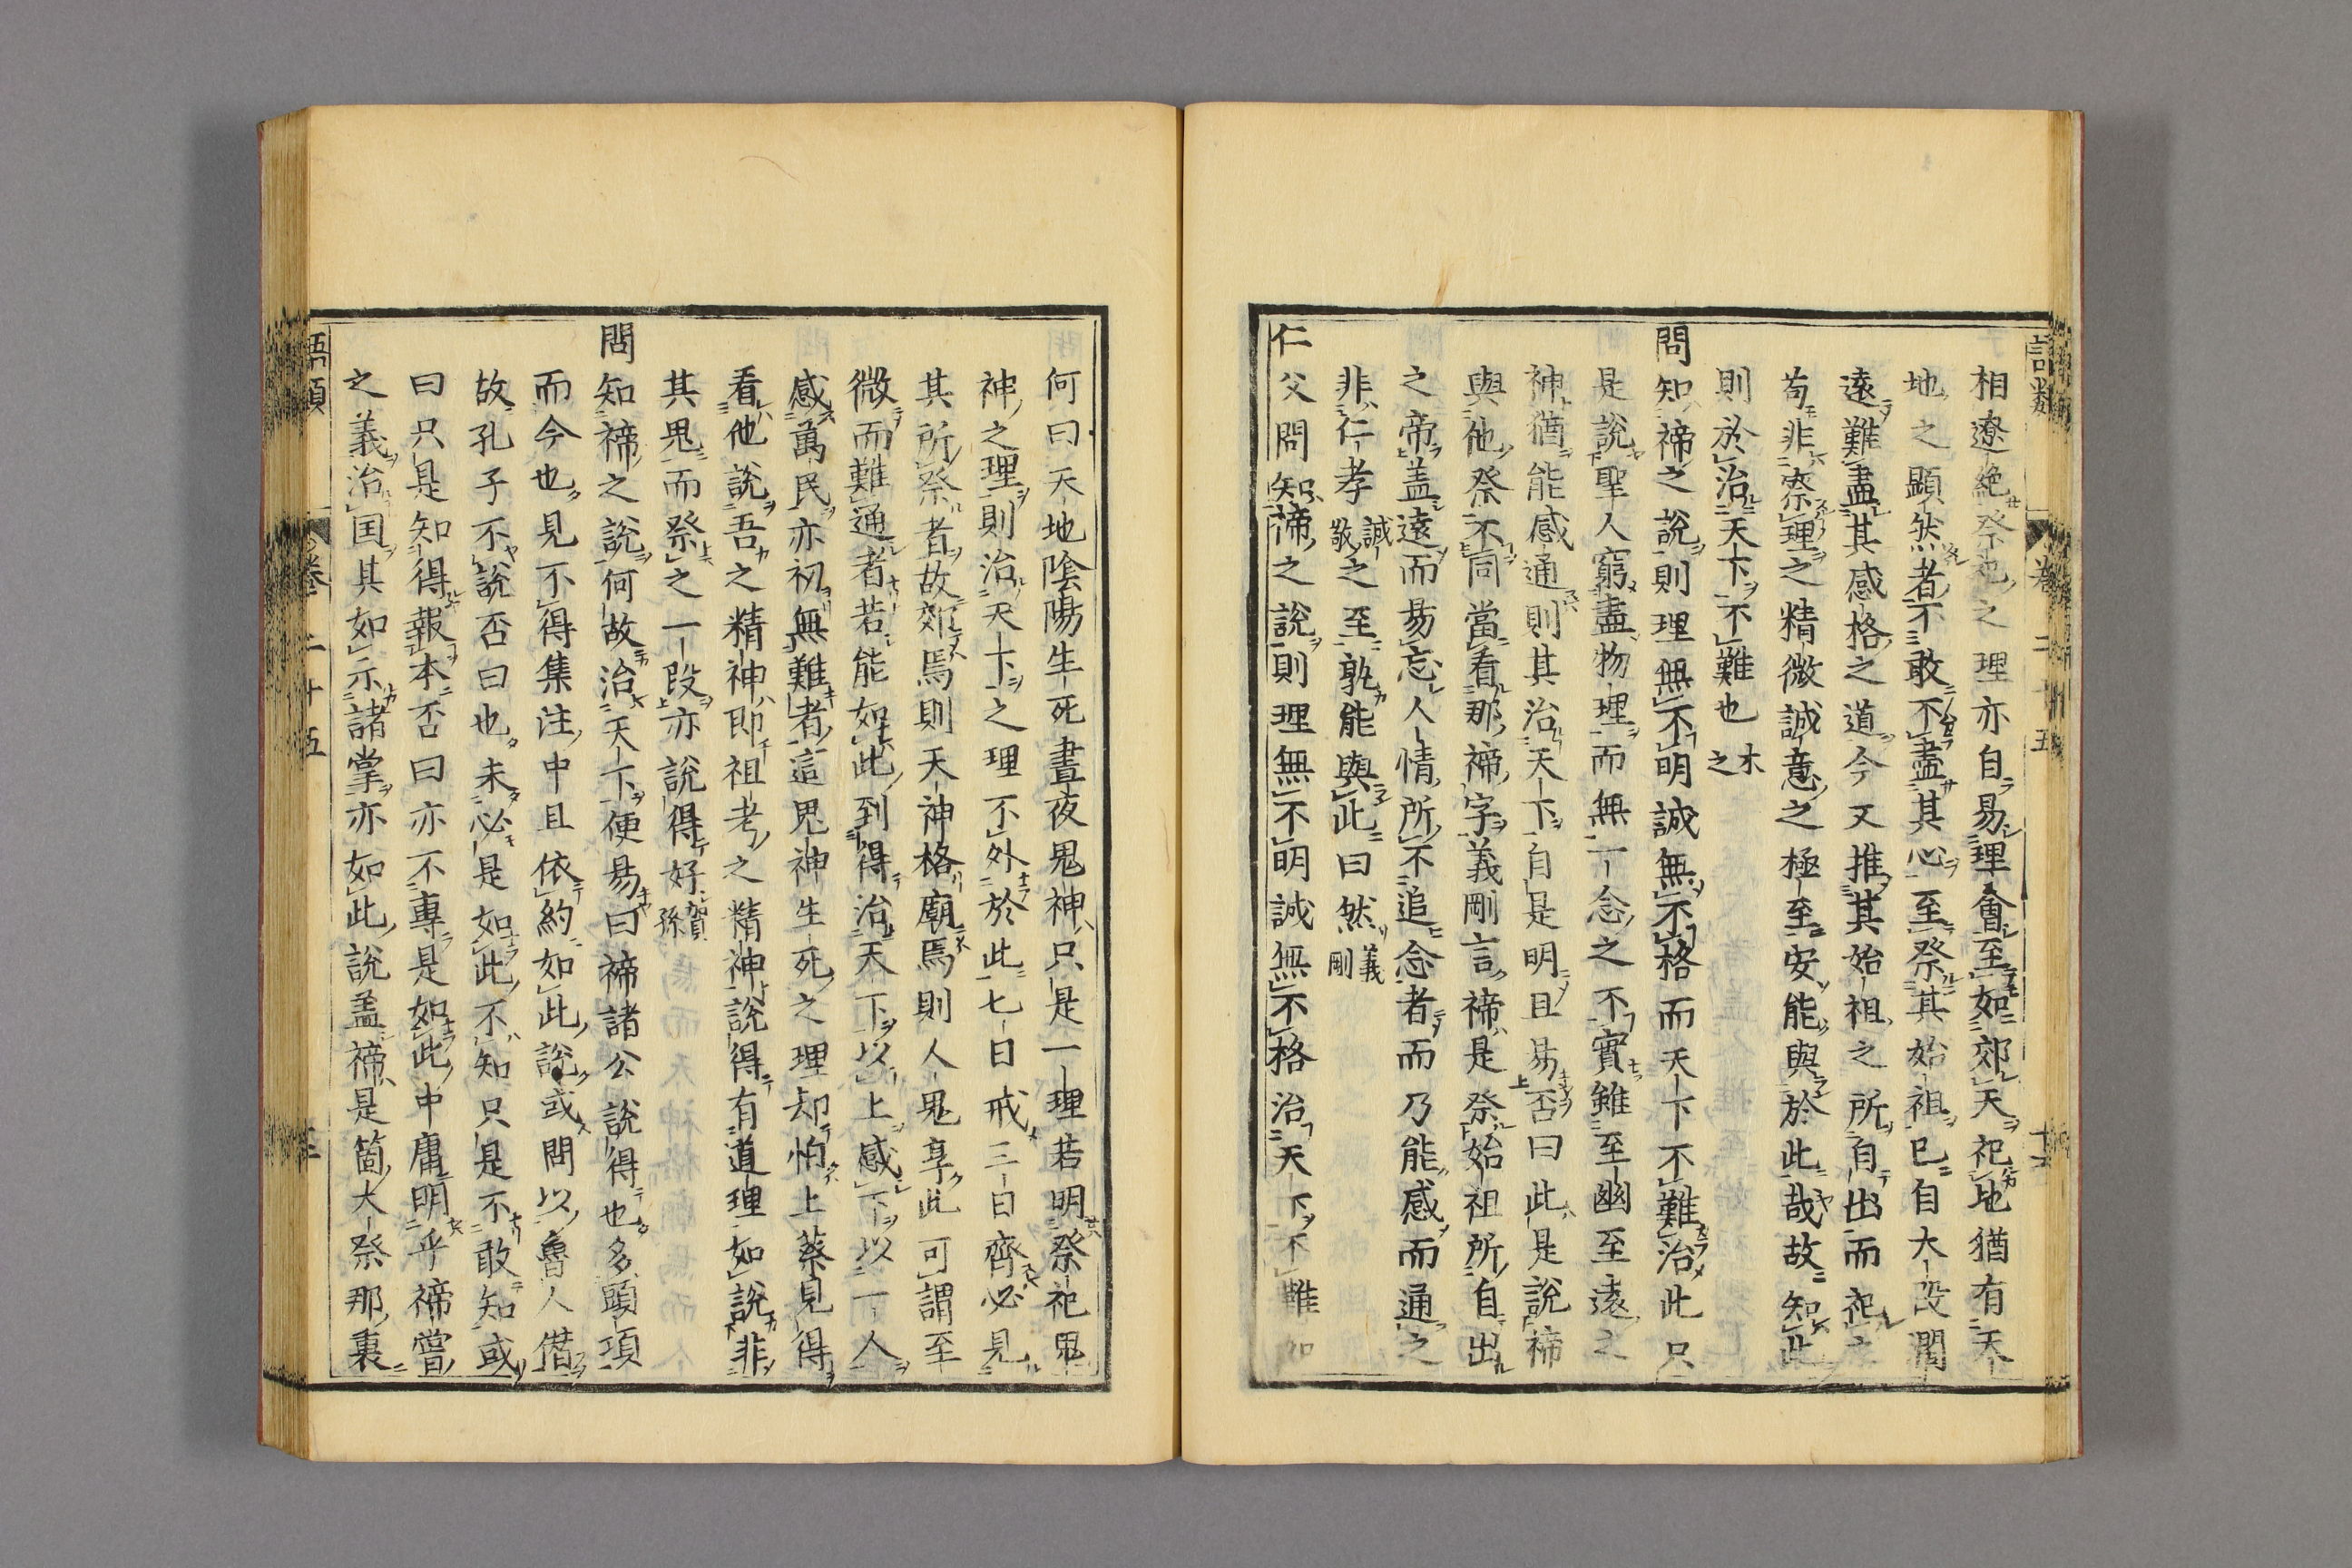 相遼絶祭祀之理亦自易理會至如郊天祀地猶有天
地之顯然者不敢不盡其心至祭其始祖已自大段闊
遠難盡其感格之道今又推其始祖之所自出而祀之
苟非察理之精微誠意之極至安能與於此哉故知此
則於治天下不難也木之
問知禘之說則理無不明誠無不格而天下不難治此只
是說聖人窮盡物理而無一念之不實雖至幽至遠之
神猶能感通則其治天下自是明且易否曰此是說禘
與他祭不同當看那禘字義剛言禘是祭始祖所自出
之帝盖遠而易忘人情所不追念者而乃能感而通之
非仁孝誠敬之至孰能與此曰然義剛
仁父問知禘之說則理無不明誠無不格治天下不難如
何曰天地陰陽生死晝夜鬼神只是一理若明祭祀鬼
神之理則治天下之理不外於此七日戒三日齊必見
其所祭者故郊焉則天神格廟焉則人鬼享此可謂至
微而難通者若能如此到得治天下以上感下以一人
感萬民亦初無難者這鬼神生死之理却怕上蔡見得
看他說吾之精神即祖考之精神說得有道理如說非
其鬼而祭之一段亦說得好賀孫
問知禘之說何故治天下便易曰禘諸公說得也多頭項
而今也見不得集注中且依約如此說或問以魯人僣
故孔子不說否曰也未必是如此不知只是不敢知或
曰只是知得報本否曰亦不專是如此中庸明乎禘嘗
之義治国其如示諸掌亦如此說盖禘是箇大祭那裏
語類 卷二十五